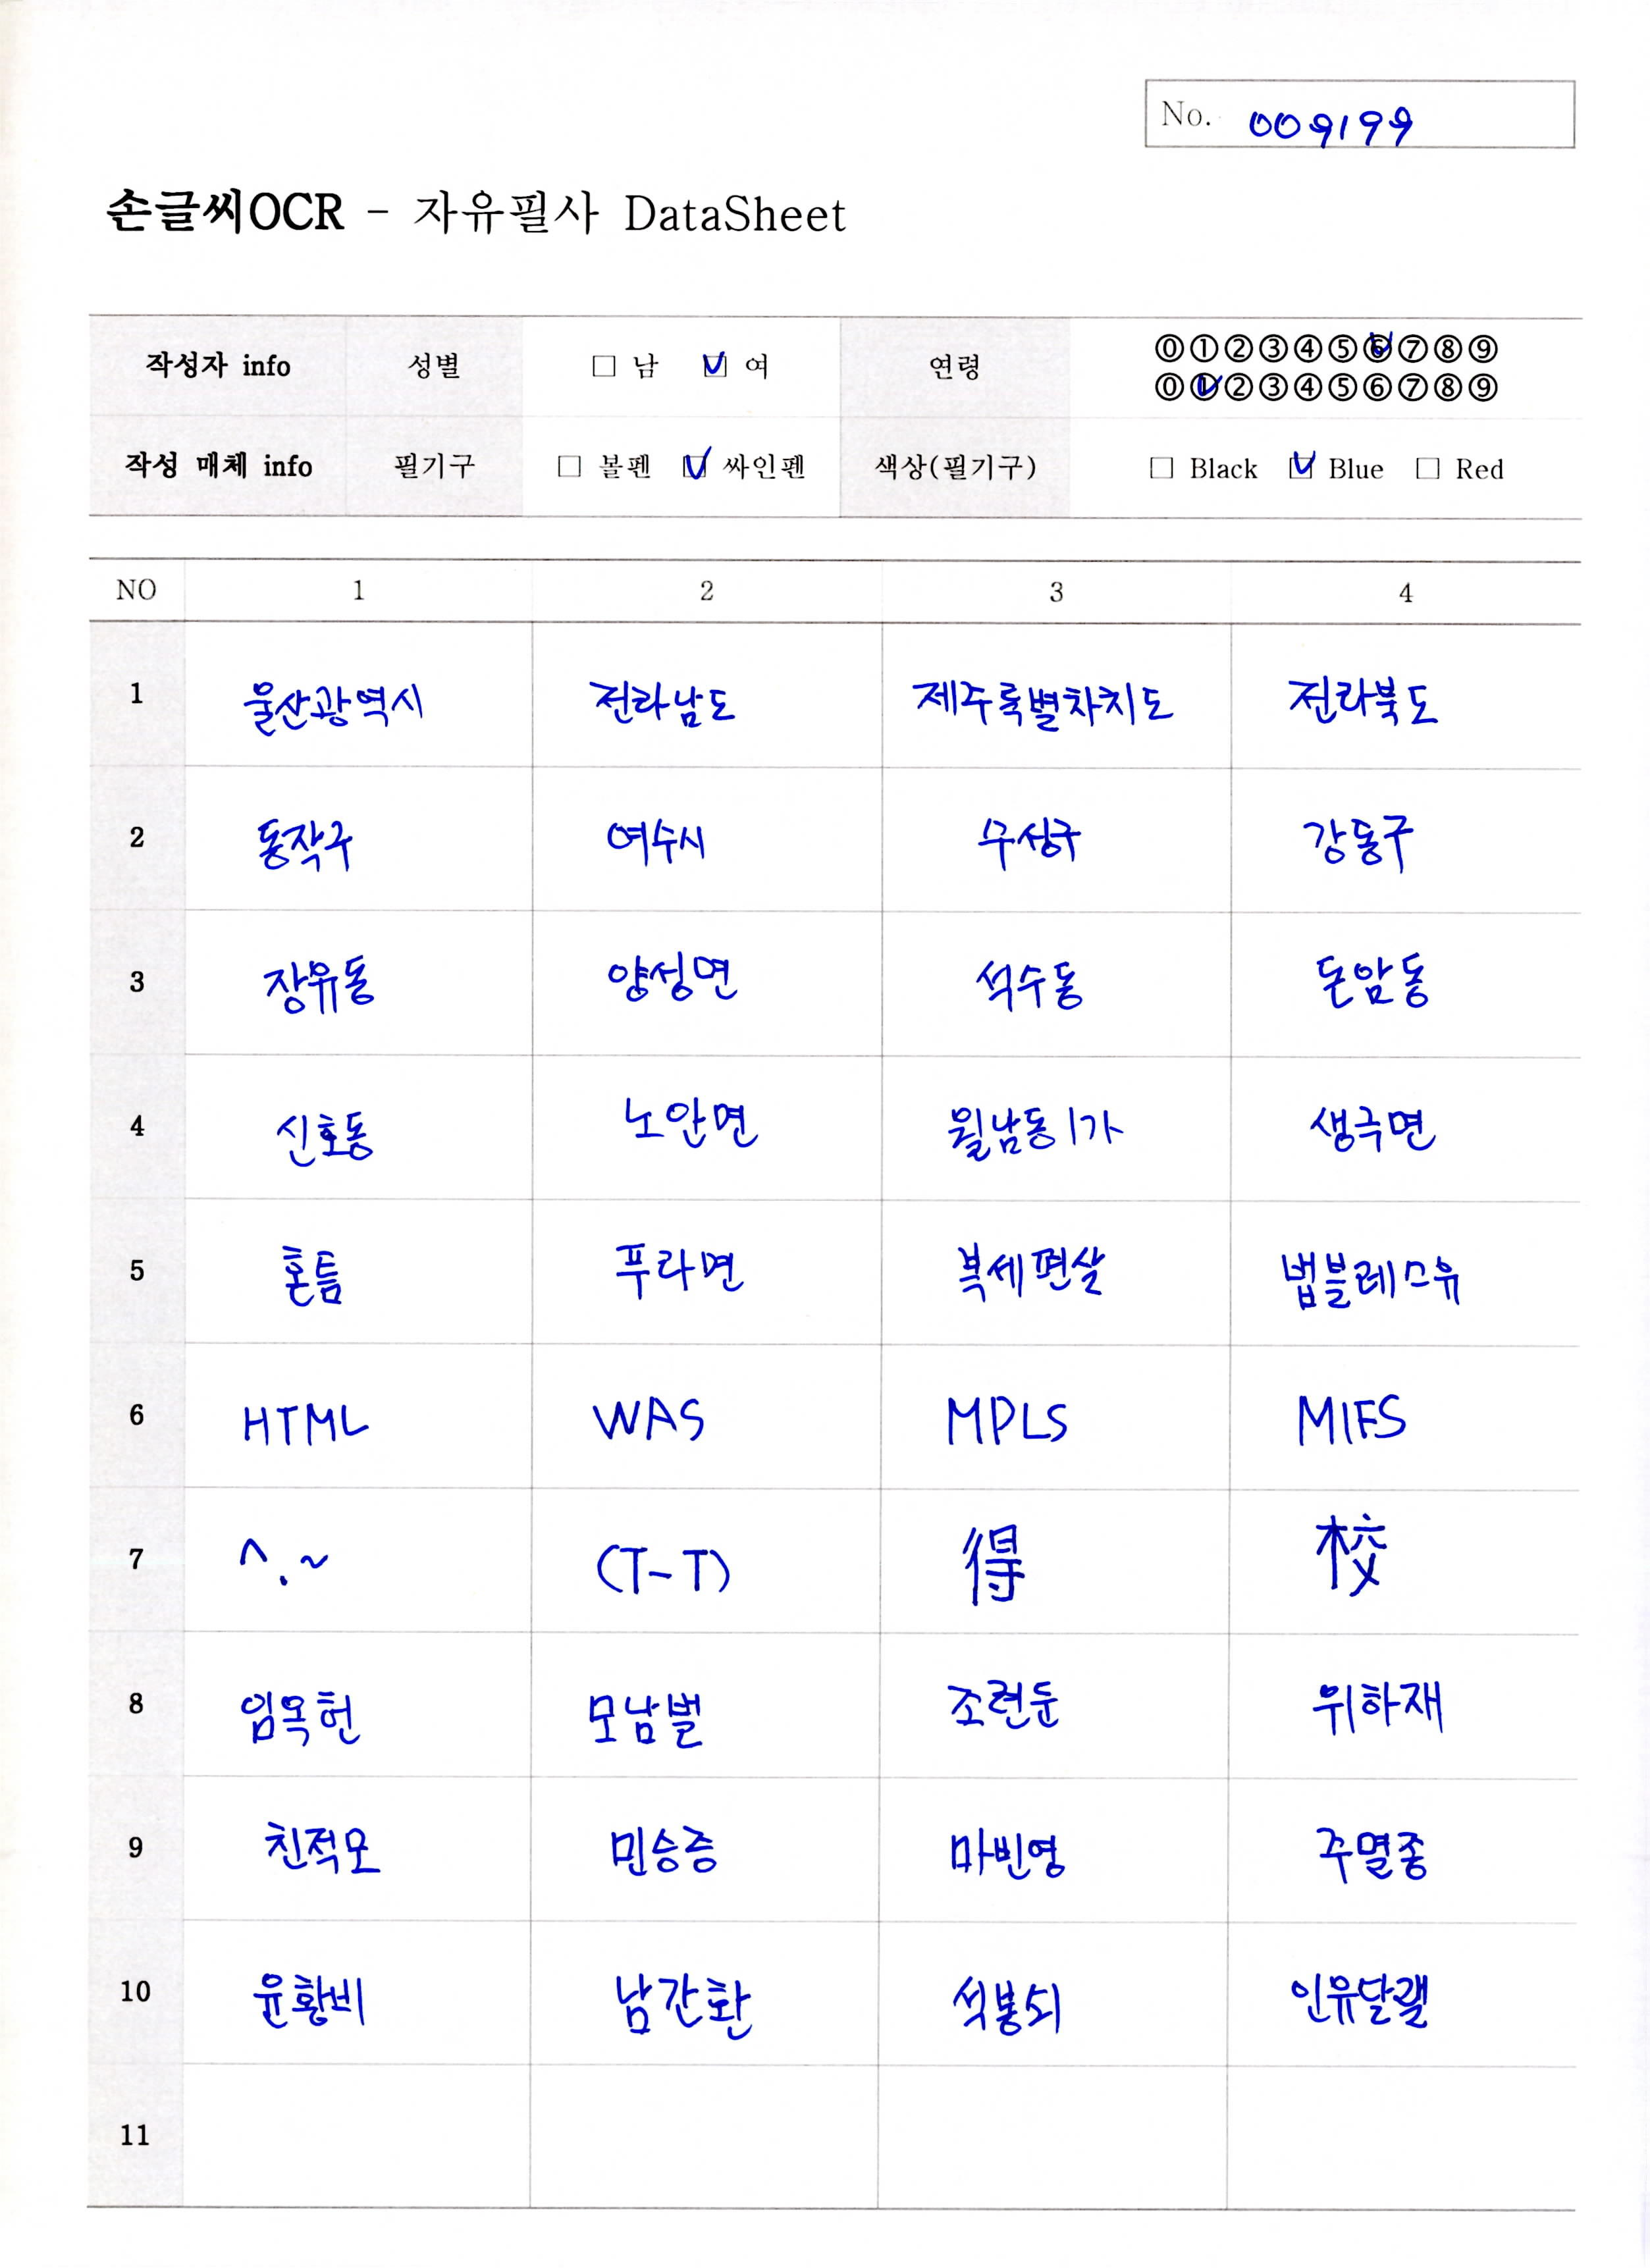 No. 009199
손글씨OCR - 자유필사 DataSheet
작성자 info 성별 □ 남 ☑ 여 연령 ⓪①②③④⑤⑥⑦⑧⑨
⓪①②③④⑤⑥⑦⑧⑨
작성 매체 info 필기구 □ 볼펜 ☑ 싸인펜 색상(필기구) □ Black ☑ Blue □ Red
NO 1 2 3 4
1 울산광역시 전라남도 제주특별자치도 전라북도
2 동작구 여수시 수성구 강동구
3 장유동 양성면 석수동 돈암동
4 신호동 노안면 월남동1가 생극면
5 혼틈 푸라면 복세편살 법블레스유
6 HTML WAS MPLS MIFS
7 ^.~ (T-T) 得 校
8 임목헌 모남벌 조련둔 위하재
9 친적모 민승증 마빈영 주멸종
10 윤황비 남간환 석봉뇌 인유달걀
11